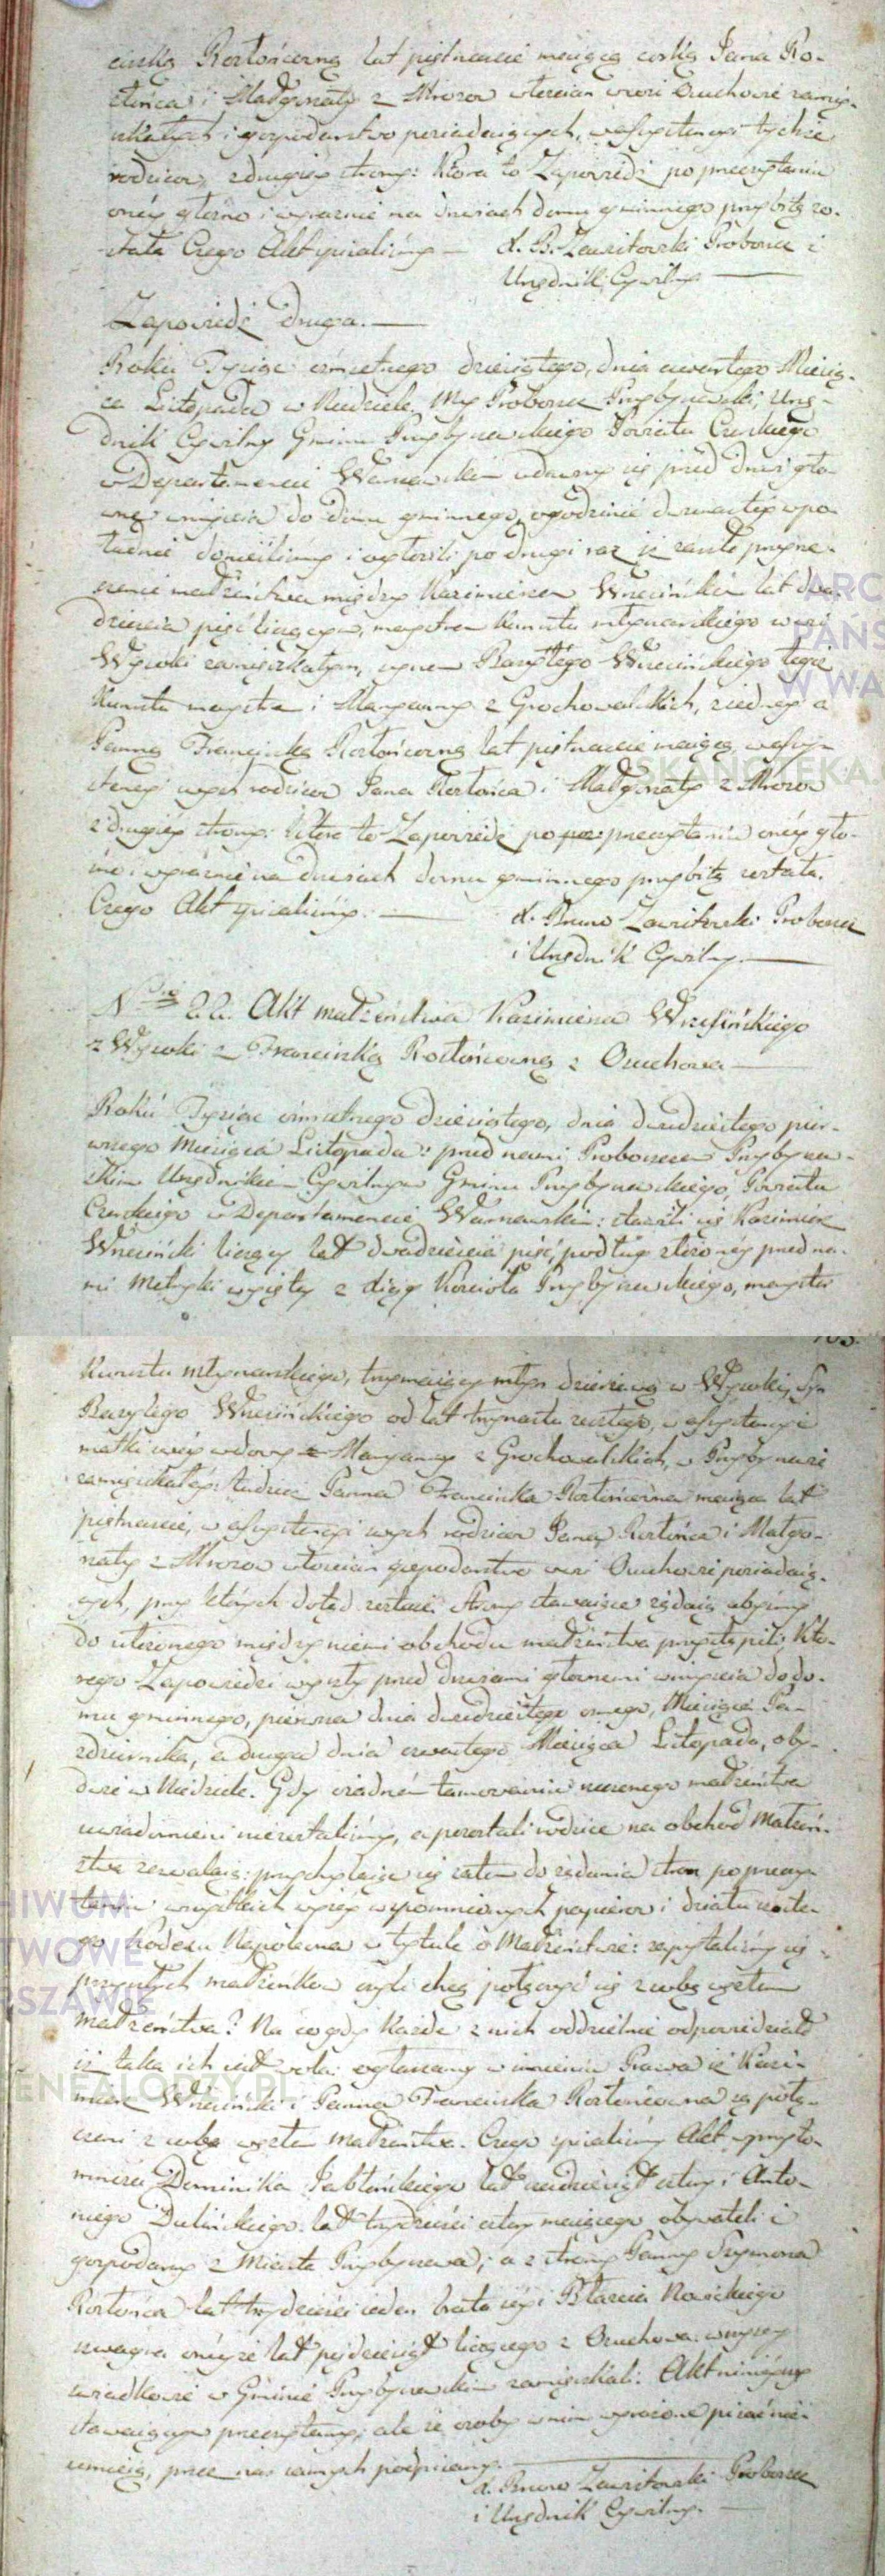 ciszką Kozłońcowną lat piętnascie maiącą corką Jana Ko-
złońca i Małgorzaty z Mrozow włoscian wwsi Ouchowie zamię-
szkałych i gospodarstwo posiadaiących, w assystencyi tychże
rodzicow, z drugiey strony: Ktora to Zapowiedź po przeczytaniu
oney głosno i wyraznie na drzwiach domu gminnego przybitą zo-
stała Czego Akt spisaliśmy — X. B. Zawitowski Proboszcz i
Urzędnik Cywilny —
Zapowiedź druga. —
Roku Tysiąc ośmsetnego dziesiątego, dnia czwartego Miesią-
ca Listopada w Niedziele. My Proboszcz Przybyszewski, Urzę-
dnik Cywilny Gminu Przybyszewskiego Powiatu Czerskiego
w Departamencie Warszawskim udawszy się przed drzwi głó-
wne weyścia do domu gminnego, ogodzinie dwunastey wpo-
łudnie donieśliśmy i ogłosili po drugi raz iż zaszło przyrze-
czenie małżeństwa między Kazimierzem Wrzesińskim lat dwa-
dziescia pięć liczącym, maystrem kunsztu młynarskiego w wsi
Wysoki zamięszkałym, synem Bazylego Wrzesińskiego tegoż
Kunsztu maystra i Maryanny z Grochowalskich, z iedney a
Panną Franciszką Kozłońcowną lat piętnascie maiącą, w assy-
stencyi swych rodzicow Jana Kozłońca i Małgorzaty z Mrozow
z drugiey strony: Ktora to Zapowiedź po prze: przeczytaniu oney gło-
sno i wyraznie na drzwiach domu gminnego przybitą została.
Czego Akt spisaliśmy. — X. Bruno Zawitowski Proboszcz
i Urzędnik Cywilny. —
Nro 22. Akt małżeństwa Kazimierza Wrzesińskiego
z Wysoki z Franciszką Kozłońcowną z Ouchowa —
Roku Tysiąc ośmsetnego dziesiątego, dnia dwudziestego pier-
wszego Miesiąca Listopada: przed nami Proboszczem Przybyszew-
skim Urzędnikiem Cywilnym Gminu Przybyszewskiego, Powiatu
Czerskiego w Departamencie Warszawskim: stawili się Kazimierz
Wrzesiński liczący lat dwadziescia pięć, podług złożoney przed na-
mi Metryki wyiętey z xiąg Kościoła Przybyszewskiego, mayster
105.
Kunsztu młynarskiego, trzymaiący młyn dzierżawą w Wysoki, Syn
Bazylego Wrzesińskiego od lat trzynastu zeszłego, w assystencyi
matki swey wdowy Maryanny z Grochowalskich, w Przybyszewie
zamięszkałey: tudzież Panna Franciszka Kozłońcowna maiąca lat
piętnascie, w assystencyi swych rodzicow Jana Kozłońca i Małgo-
rzaty z Mrozow włoscian gospodarstwo wwsi Ouchowie posiadaią-
cych, przy których dotąd zostaie. Strony stawaiące żądaią abyśmy
do ułożonego między niemi obchodu małżeństwa przystąpili, Kto-
rego Zapowiedzi wyszły przed drzwiami głownemi weyścia do do-
mu gminnego, pierwsza dnia dwudziestego osmego, Miesiąca Pa-
ździernika, a druga dnia czwartego Miesiąca Listopada, oby-
dwie w Niedziele. Gdy o żadnem tamowaniu rzeczonego małżeństwa
uwiadomieni niezostaliśmy, a pozostali rodzice na obchod Małżeń-
stwa zezwalaią: przychylaiąc się zatem do żądania stron po przeczy-
taniu wszystkich wyżey wspomnionych papierow i działu szoste-
go Kodexu Napoleona w tytule o Małżeństwie: zapytaliśmy się
przyszłych małżonkow czyli chcą połączyć się z sobą węzłem
małżeństwa? Na co gdy każde z nich oddzielnie odpowiedziało
iż taka ich iest wola: ogłaszamy w imieniu Prawa iż Kazi-
mierz Wrzesiński i Panna Franciszka Kozłońcowna są połą-
czeni z sobą węzłem małżeństwa. Czego spisaliśmy Akt w przyto-
mności Dominika Jabłońskiego lat cztery i Anto-
niego Dulińskiego lat trzydzieści cztery maiącego obywateli i
gospodarzy z Miasta Przybyszewa; a z strony Panny Szymona
Kozłońca lat trzydzieści ieden brata iey i Błażeia Nowickiego
szwagra oneyże lat pięćdziesiąt liczącego z Ouchowa: wszyscy
swiadkowie w Gminie Przybyszewskim zamięszkali. Akt ninieyszy
stawaiącym przeczytany, ale że osoby w nim wyrażone pisać nie-
umieią, przez nas samych podpisany. —
X. Bruno Zawitowski Proboszcz
i Urzędnik Cywilny. —
ARCHIWUM
PAŃSTWOWE
W WARSZAWIE
SKANOTEKA.GENEALODZY.PL